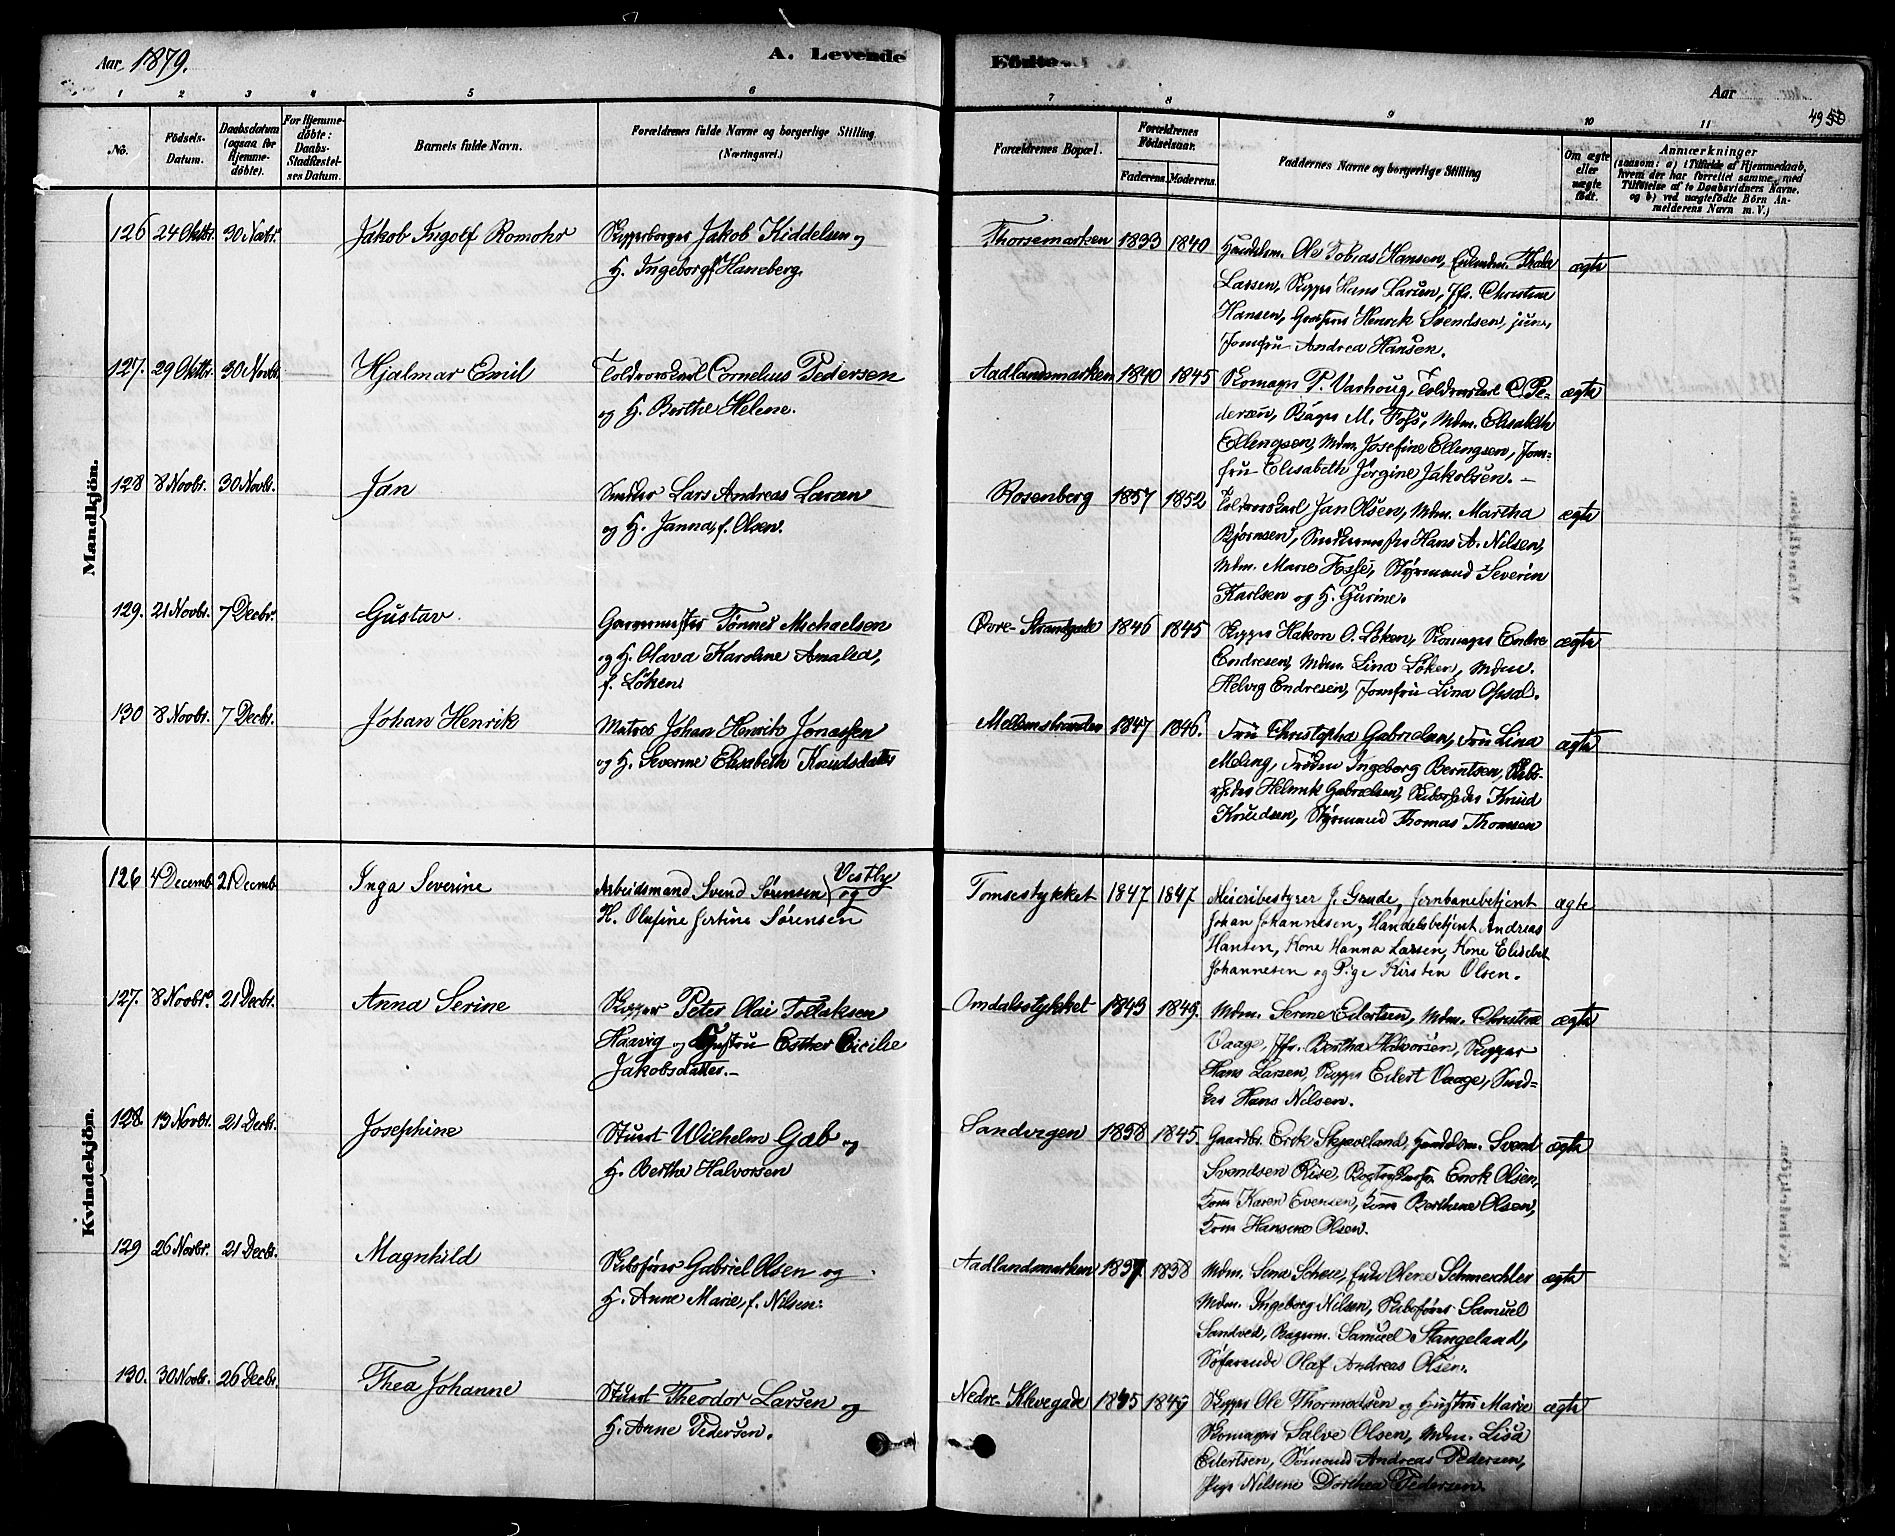 Aar 1879.
A. Levende
Fødte
Aar
49
1 2 3 4 5 6 7 8 9 10 11
No.
Fødsels-
Datum.
Daabsdatum
(ogsaa for
Hjemme-
døbte).
For Hjemme-
døbte:
Daabs-
Stadfæstel-
ses Datum.
Barnets fulde Navn.
Forældrenes fulde Navne og borgerlige Stilling
(Næringsvei.)
Forældrenes Bopæl.
Forældrenes
Fødselsaar.
Faderens. Moderens.
Faddernes Navne og borgerlige Stilling
Om ægte
eller
uægte
født.
Anmærkninger
(saasom: a) i Tilfælde af Hjemmedaab,
hvem der har forrettet samme, med
Tilføielse af to Daabsvidners Navne.
og b) ved uægtefødte Børn An-
melderens Navn m. V.)
Mandkjön.
126 24 Oktbr. 30 Novbr. Jakob Ingolf Romohr
Skipperborger Jakob Kiddelsen og
H. Ingeborg f. Haneberg.
Thorsemarken 1833 1840
Handelsm. Ole Tobias Hansen, Thala
Larsen, Skipper Hans Larsen, Jfr. Christine
Hansen, Henrik Svendsen, jun.,
Jomfru Andrea Hansen.
ægte
127. 29 Oktbr. 30 Novbr. Hjalmar Emil
Toldrorskarl Cornelius Pedersen
og H. Berthe Helene.
Aadlandsmarken 1840 1845
Skomager P. Varhoug, Toldrorskarl C. Pe-
dersen, Bager M. Foss, Mdm. Elisabeth
Ellingsen, Mdm. Josefine Ellingsen, Jom-
fru Elisabeth Jørgine Jakobsen. –
ægte
128 8 Novbr. 30 Novbr. Jan
Snedker Lars Andreas Larsen
og H. Janna, f. Olsen.
Rosenberg 1857 1852
Toldrorskarl Jan Olsen, Mdm. Martha
Bjørnsen, Snedkermester Hans A. Nilsen,
Mdm. Marie Fosse, Styrmand Severin
Karlsen og H. Gurine.
ægte
129. 21 Novbr. 7 Decbr. Gustav.
Garvermester Tønnes Michaelsen
og H. Olava Karoline Amalia,
f. Löken.
Øvre-Strandgade 1846 1845
Skipper Hakon O. Löken, Skomager Endre
Endresen, Mdm. Lina Löken, Mdm.
Helvig Endresen, Jomfru Lina Opsal.
ægte
130 8 Novbr. 7 Decbr. Johan Henrik
Matros Johan Henrik Jonassen
og H. Severine Elisabeth Knudsdatter
Mellemstranden 1847 1846.
Fru Christopha Gabrielsen, Fru Lina
Meling, Frøken Ingeborg Berntsen, Skibs-
rheder Helmik Gabrielsen, Skibsrheder Knud
Knudsen, Styrmand Thomas Thomsen
ægte
Kvindekjön.
126 4 Decemb. 21 Decemb. Inga Severine
Arbeidsmand Svend Sørensen (Vestby
og
H. Olufine Jertine Sørensen
Tomsestykket 1847 1847
Meieribestyrer J. Gaude, Jernbanebetjent
Johan Johannesen, Handelsbetjent Andreas
Hansen, Kone Hanna Larsen, Kone Elisebet
Johannesen og Pige Kirsten Olsen.
ægte
127. 8 Novbr. 21 Decbr. Anna Serine
Skipper Peter Olai Tollaksen
Haavig og Hustru Esther Cicilie
Jakobsdatter. –
Omdalsstykket 1843 1849.
Mdm. Serine Eilertsen, Mdm. Christine
Vaage, Jfr. Bertha Halvorsen, Skipper
Hans Larsen, Skipper Eilert Vaage, Sned-
ker Hans Nilsen.
ægte
128. 13 Novbr. 21 Decbr. Josephine
Stuert Wilhelm Gab og
H. Berthe Halvorsen
Sandvigen 1838 1845.
Gaardbr. Erik Skjæveland, Handelsm. Svend
Svendsen Rise, Enok Olsen,
Kone Karen Evensen, Kone Berthine Olsen,
Kone Hansine Olsen.
ægte
129 26 Novbr. 21 Decbr. Magnhild
Skibsfører Gabriel Olsen og
H. Anne Marie, f. Nilsen.
Aadlandsmarken 1837. 1838
Mdm. Sena Scheie, Enke Olene Schmeichler
Mdm. Ingeborg Nilsen, Skibsfører Samuel
Sandved, Bagerm. Samuel Stangeland,
Søfarende Olaf Andreas Olsen.
ægte
130. 30 Novbr. 26 Decbr. Thea Johanne
Stuert Theodor Larsen og
H. Anne Pedersen.
Nedre-Klevegade 1845 1849
Skipper Ole Thormodsen og Hustru Marie
Skomager Salve Olsen, Mdm. Lisa
Eilertsen, Sömand Andreas Pedersen,
Pige Nilsine Dorthea Pedersen.
ægte